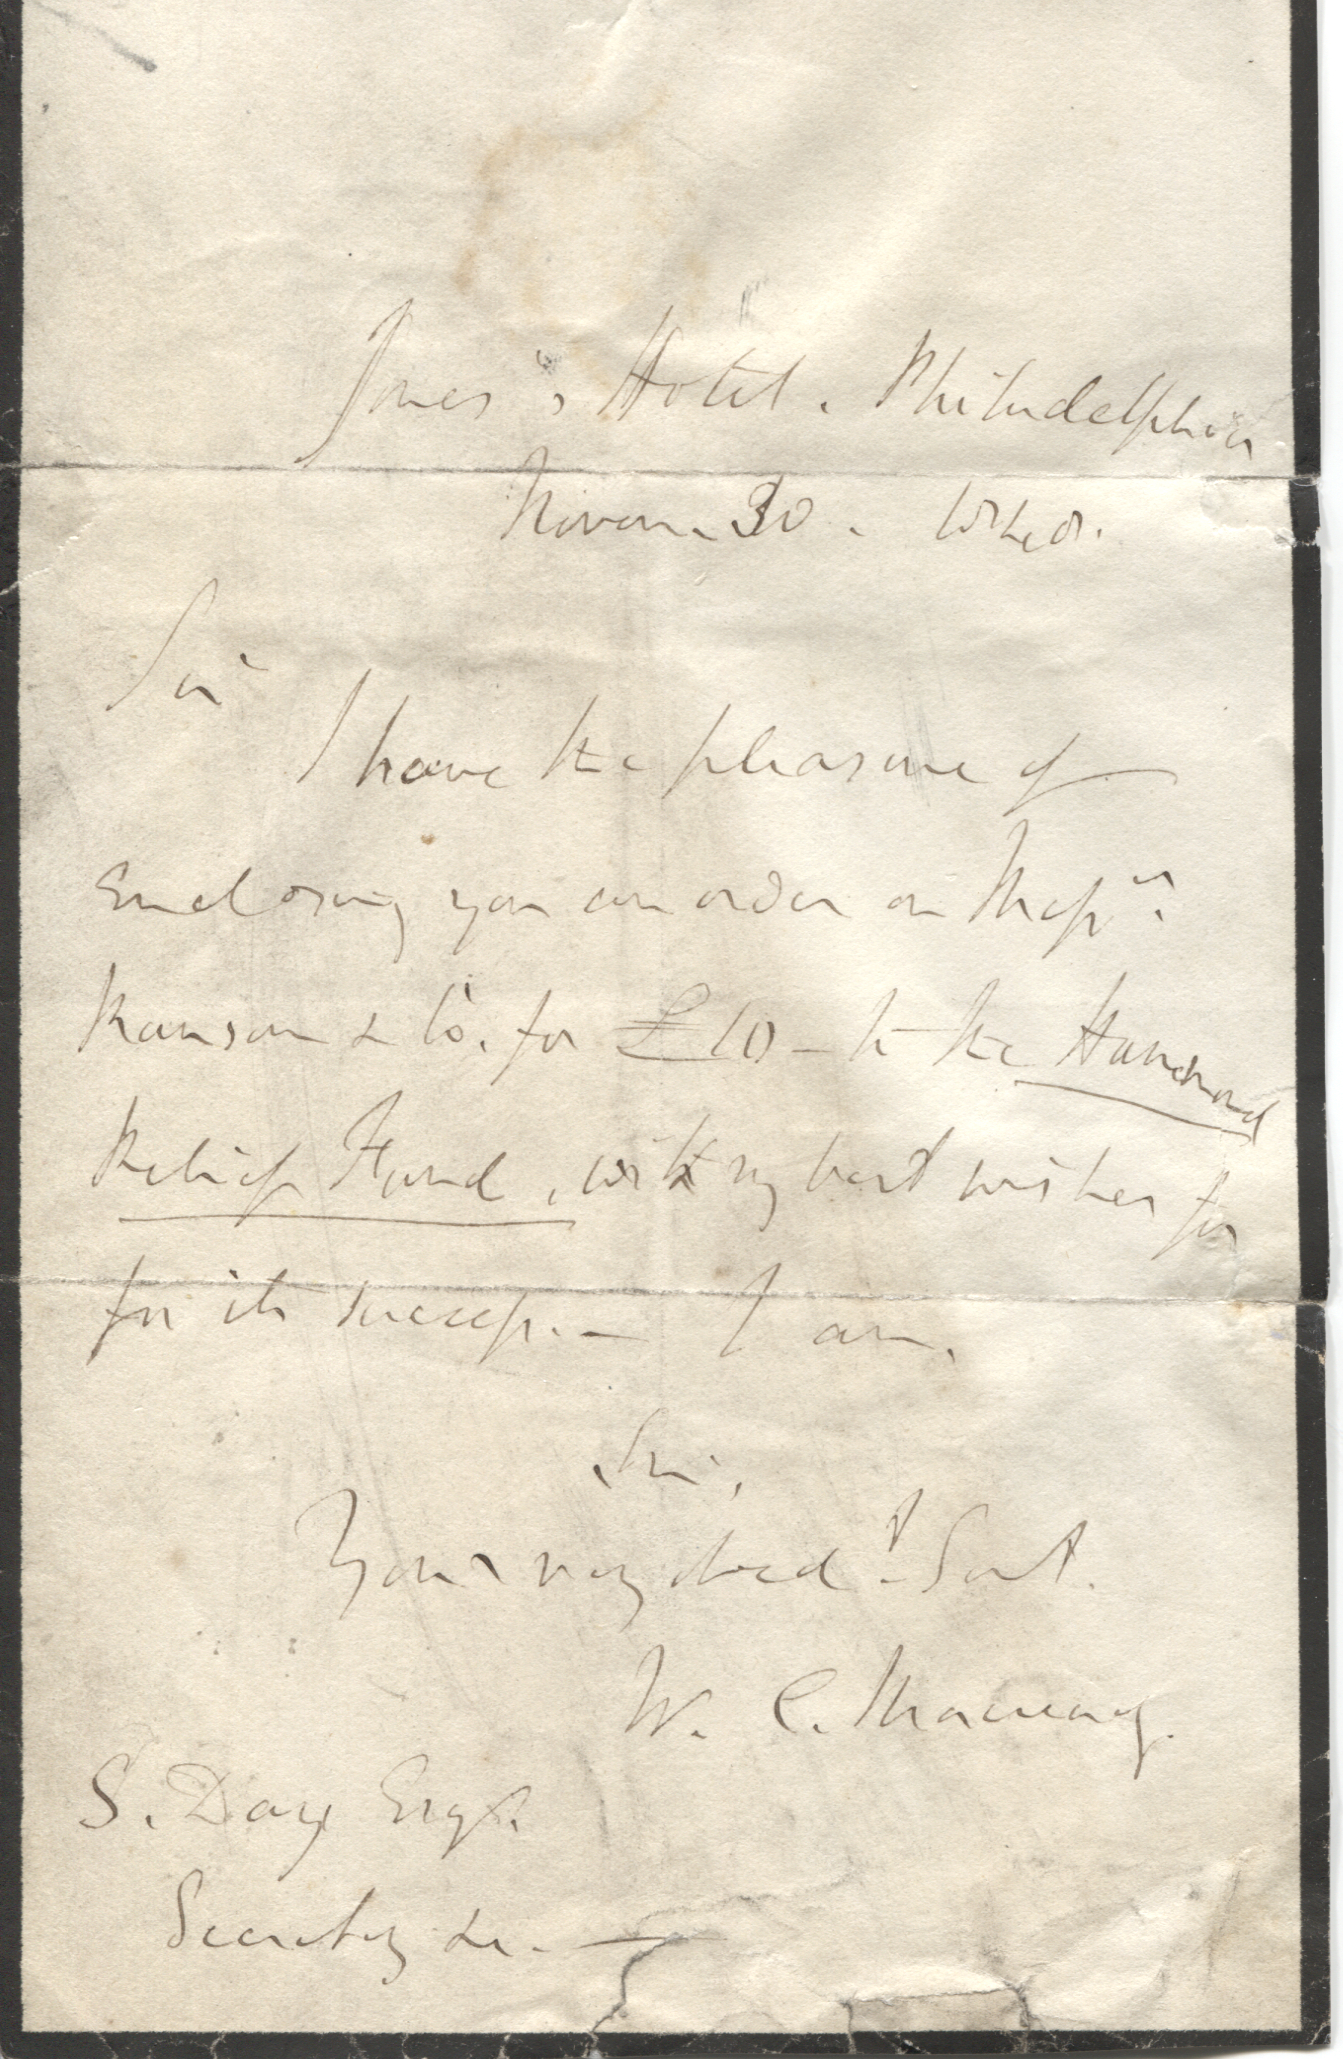 Jones's Hotel. Philadelphia
Novem. 30.
Sir
I have the pleasure of
enclosing you an order on Mess.rs
Ransom & Co. for £10 - to the
Relief Fund, with my best wishes for
for its success. — I am.
Sir,
Your very obed.t Servt.
W. C. Macready.
S. Day Esqr.
Secretary &c. —